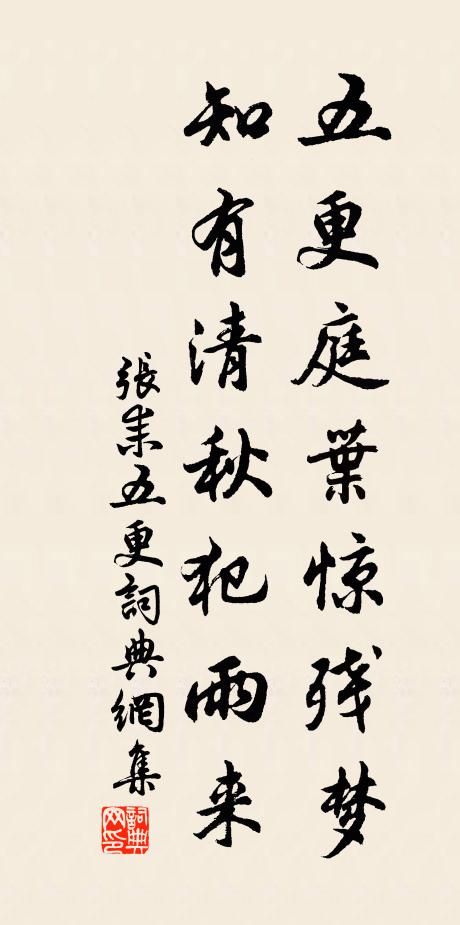 五更庭葉惊残梦
知有清秋犯雨来
張耒五更詞典網集
詞典网印